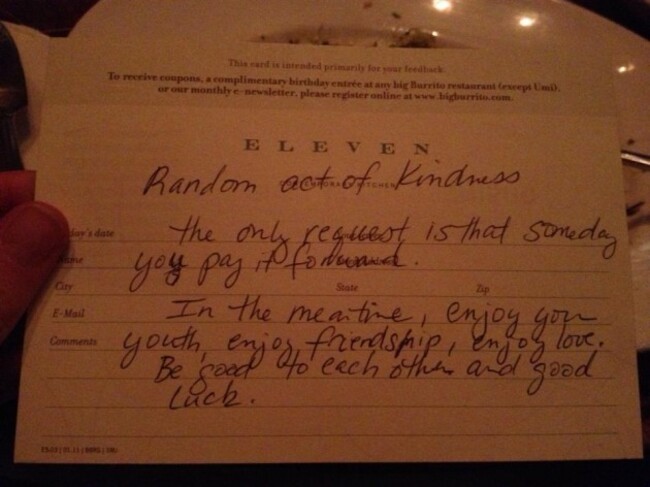 This card is intended primarily for your feedback.
To receive coupons, a complimentary birthday entrée at any big Burrito restaurant (except Umi),
or our monthly e-newsletter, please register online at www.bigburrito.com.
ELEVEN
Random act of Kindness
day's date the only request is that someday
me you pay it forward.
City State Zip
E-Mail In the meantime, enjoy your
Comments youth, enjoy friendship, enjoy love.
Be good to each other and good
luck.